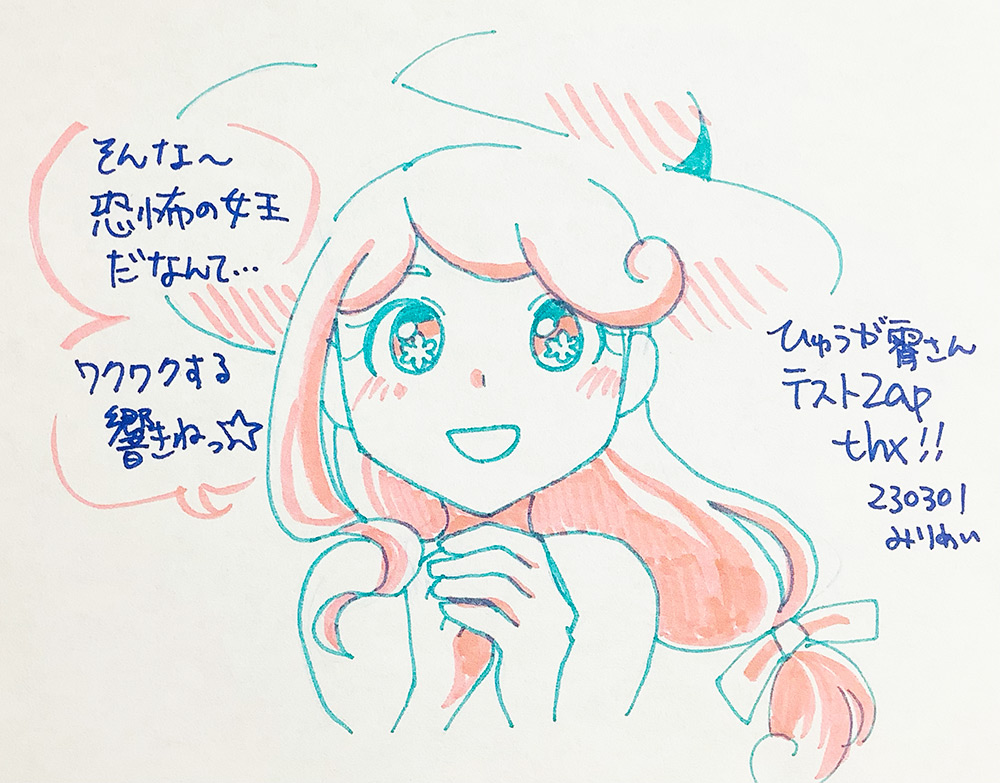 そんなぁ〜
恐怖の女王
だなんて…
ワクワクする
響きねっ☆
ひゅうが霄さん
テストZap
thx!!
230301
みりあい